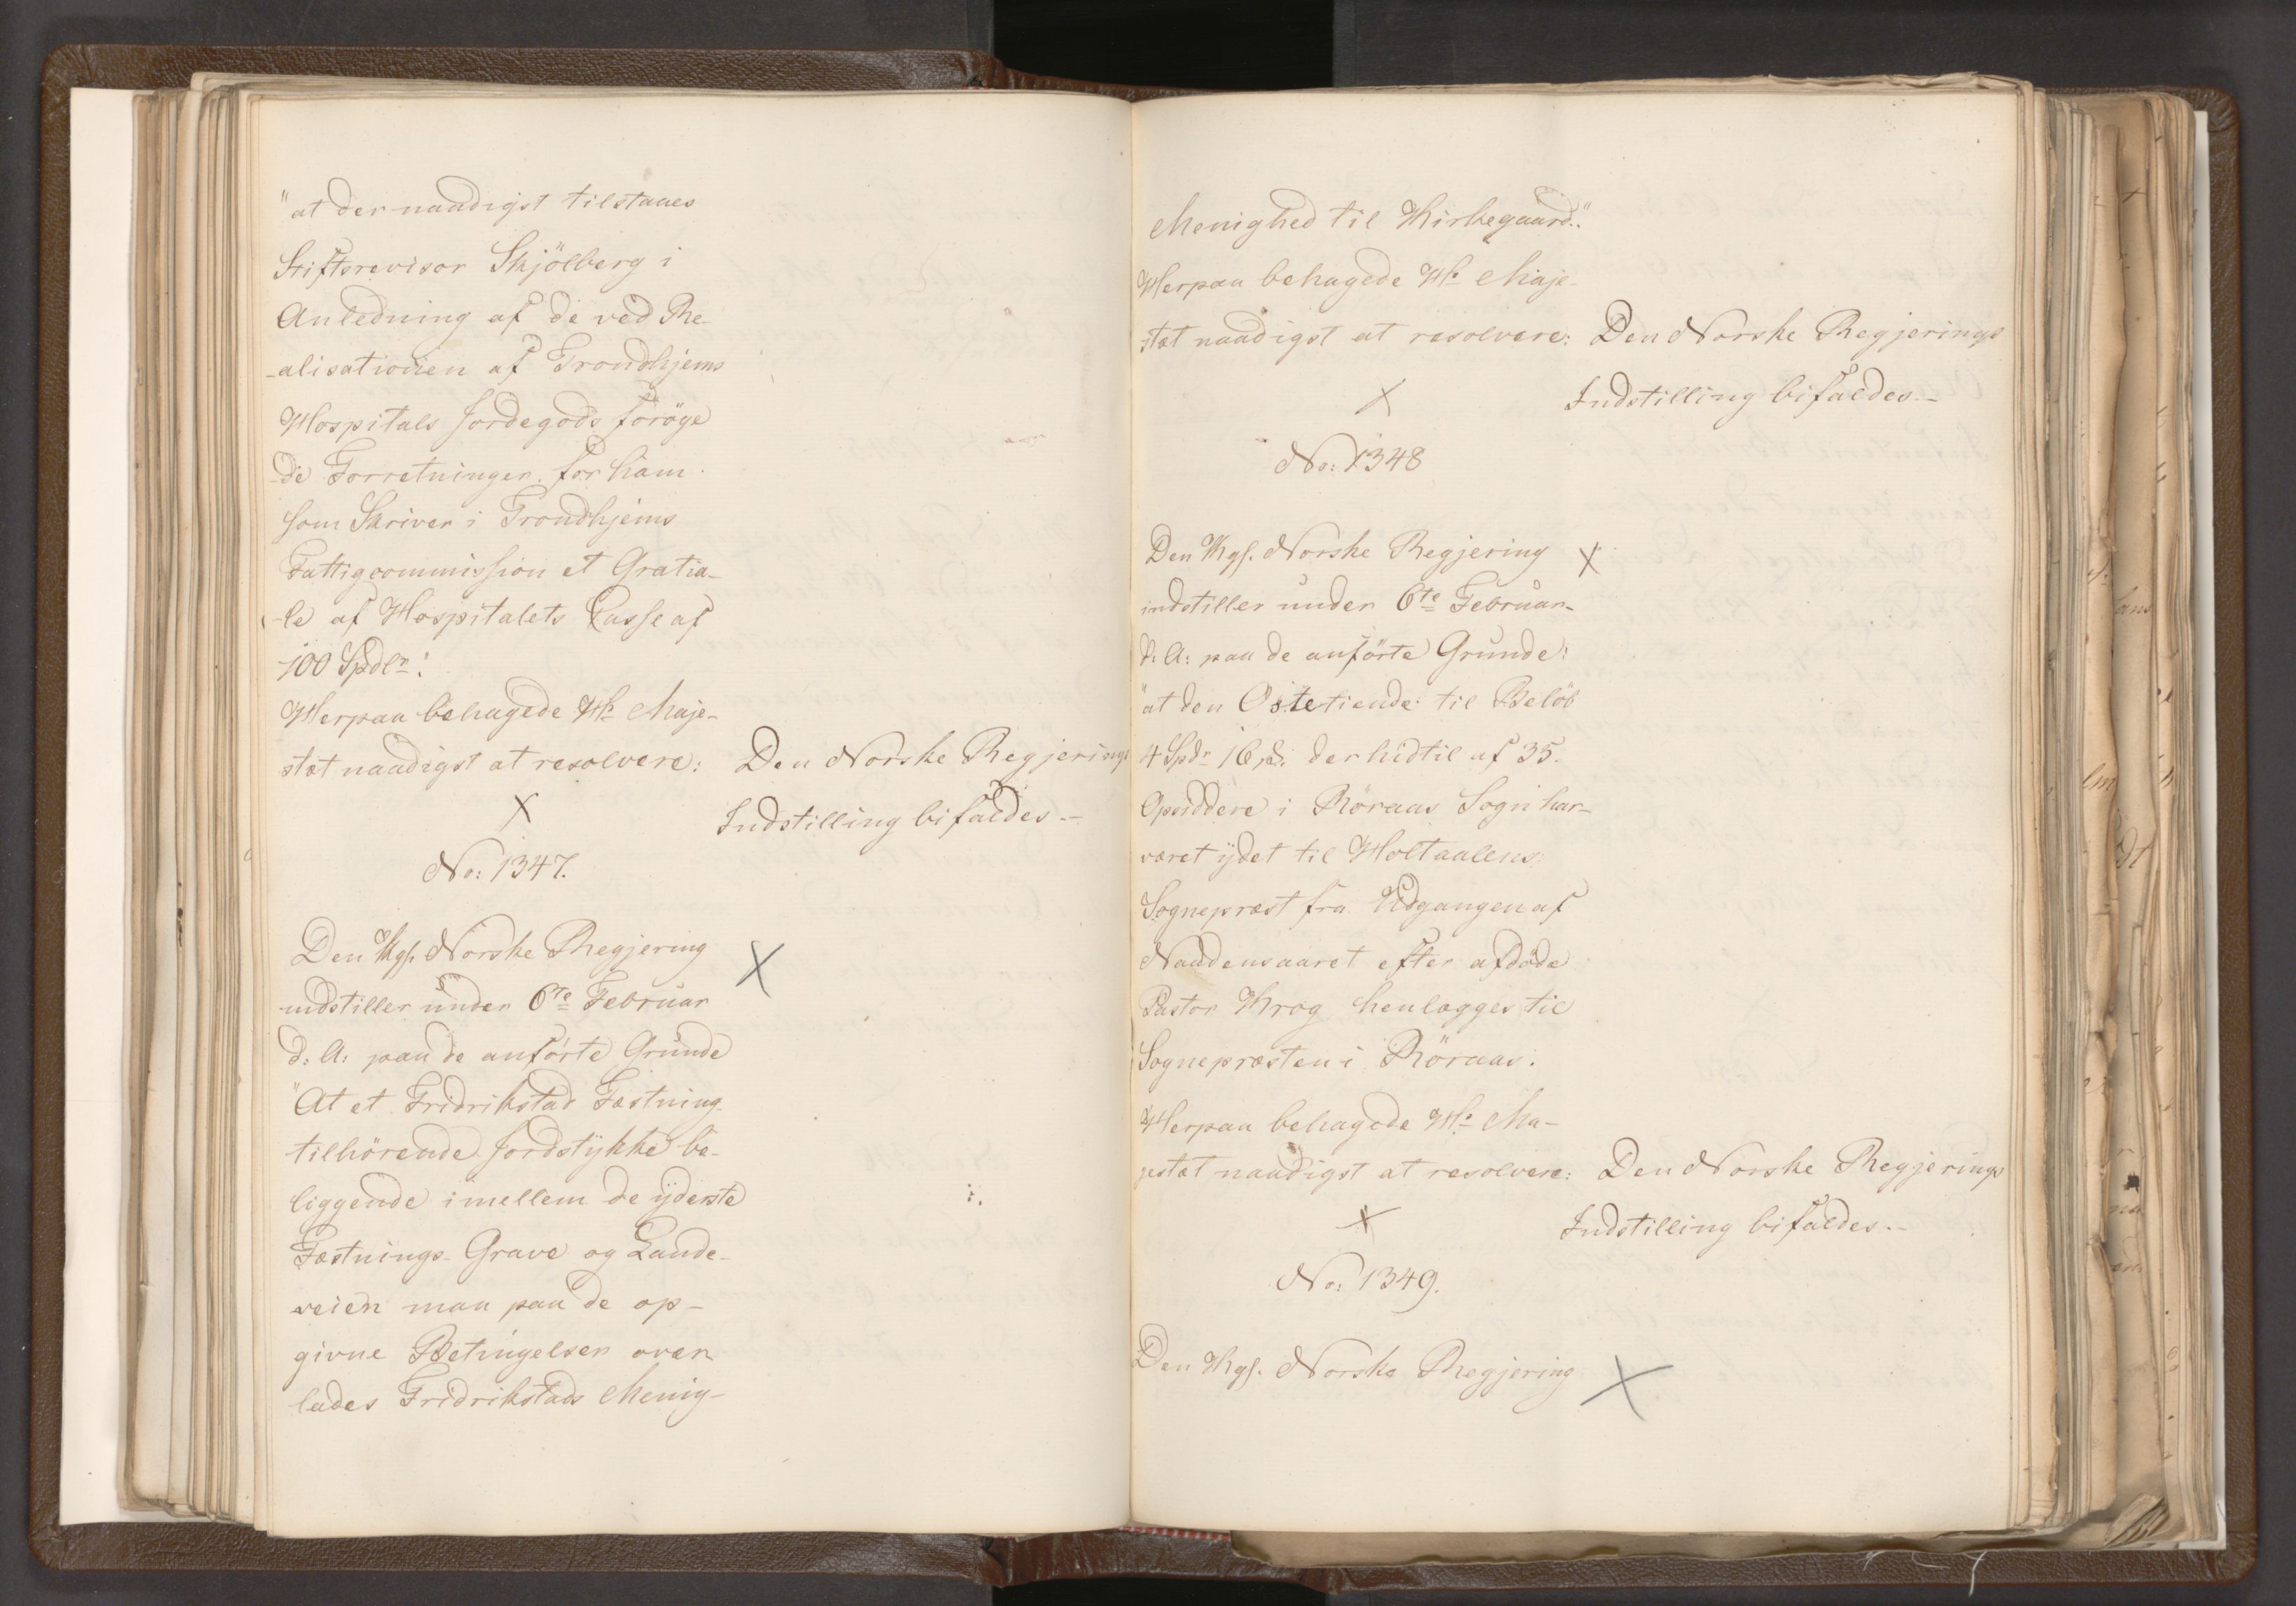 "at der naadigst tilstaaes
Stiftsrevisor Skjölberg i
Anledning af de ved Re-
-alisationen af Trondhjems
Hospitals Jordegods foröge
-de Forretninger for ham
som Skriver i Trondhjems
Fattigcommission et Gratia-
-le af Hospitalets Casse af
100 Spdlr:
Herpaa behagede Hs Maje-
stæt naadigst at resolvere: Den Norske Regjerings
Indstilling bifaldes.-
No: 1347.
Den Kgl. Norske Regjering
indstiller under 6te Februar
d: A: paa de anførte Grunde
"At et Fridrikstad Fæstning
tilhörende Jordstykke be-
liggende imellem de yderste
Fæstnings- Grave og Lande-
veien maa paa de op-
givne Betingelser over
lades Fridrikstads Menig-
Menighed til Kirkegaard."
Herpaa behagede Hs Maje-
stæt naadigst at resolvere: Den Norske Regjerings
Indstilling bifaldes.-
No: 1348
Den Kgl. Norske Regjering
indstiller under 6te Februar
d: A: paa de anförte Grunde:
"at den Ostetiende til Belöb
4 Spdr 16 ß: der hidtil af 35.
Opsiddere i Röraas Sogn har
været ydet til Holtaalens
Sognepræst fra Udgangen af
Naadensaaret efter afdöde
Pastor Krog henlægges til
Sognepræsten i Röraas.
Herpaa behagede Hs Ma-
jestæt naadigst at resolvere: Den Norske Regjerings
Indstilling bifaldes.-
No: 1349.
Den Kgl. Norske Regjering